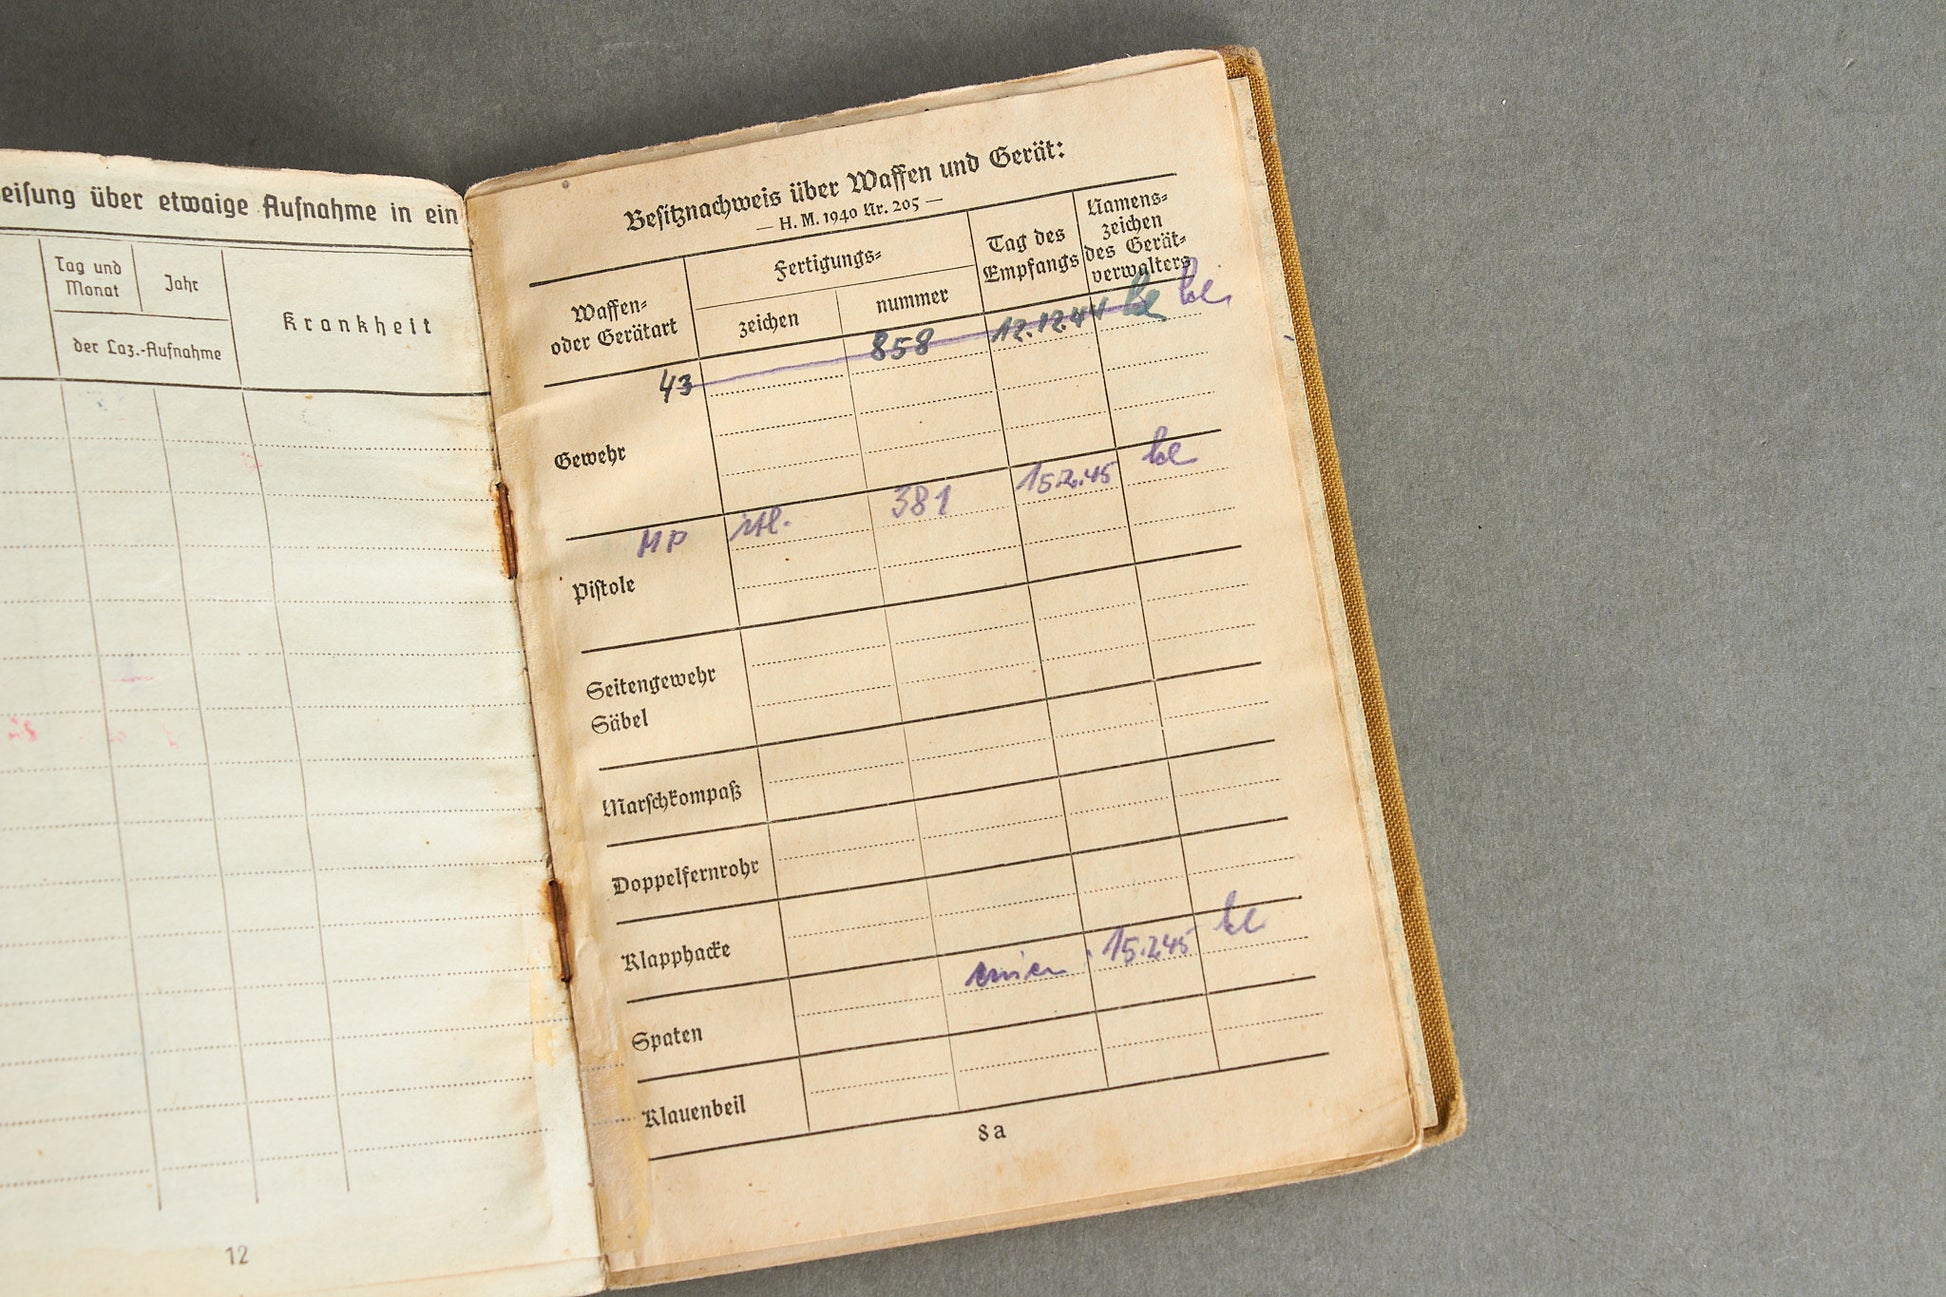 eisung über etwaige Aufnahme in ein
Tag und Monat
Jahr
der Laz.-Aufnahme
Krankheit
12
Besitznachweis über Waffen und Gerät:
— H. M. 1940 Nr. 205 —
Waffen-
oder Gerätart
Fertigungs-
zeichen
nummer
Tag des
Empfangs
Namens-
zeichen
des Gerät-
verwalters
43 858 12.12.44
Gewehr
MP itl. 381 15.2.45
Pistole
Seitengewehr
Säbel
Marschkompaß
Doppelfernrohr
Klapphacke
15.2.45
Spaten
Klauenbeil
8a